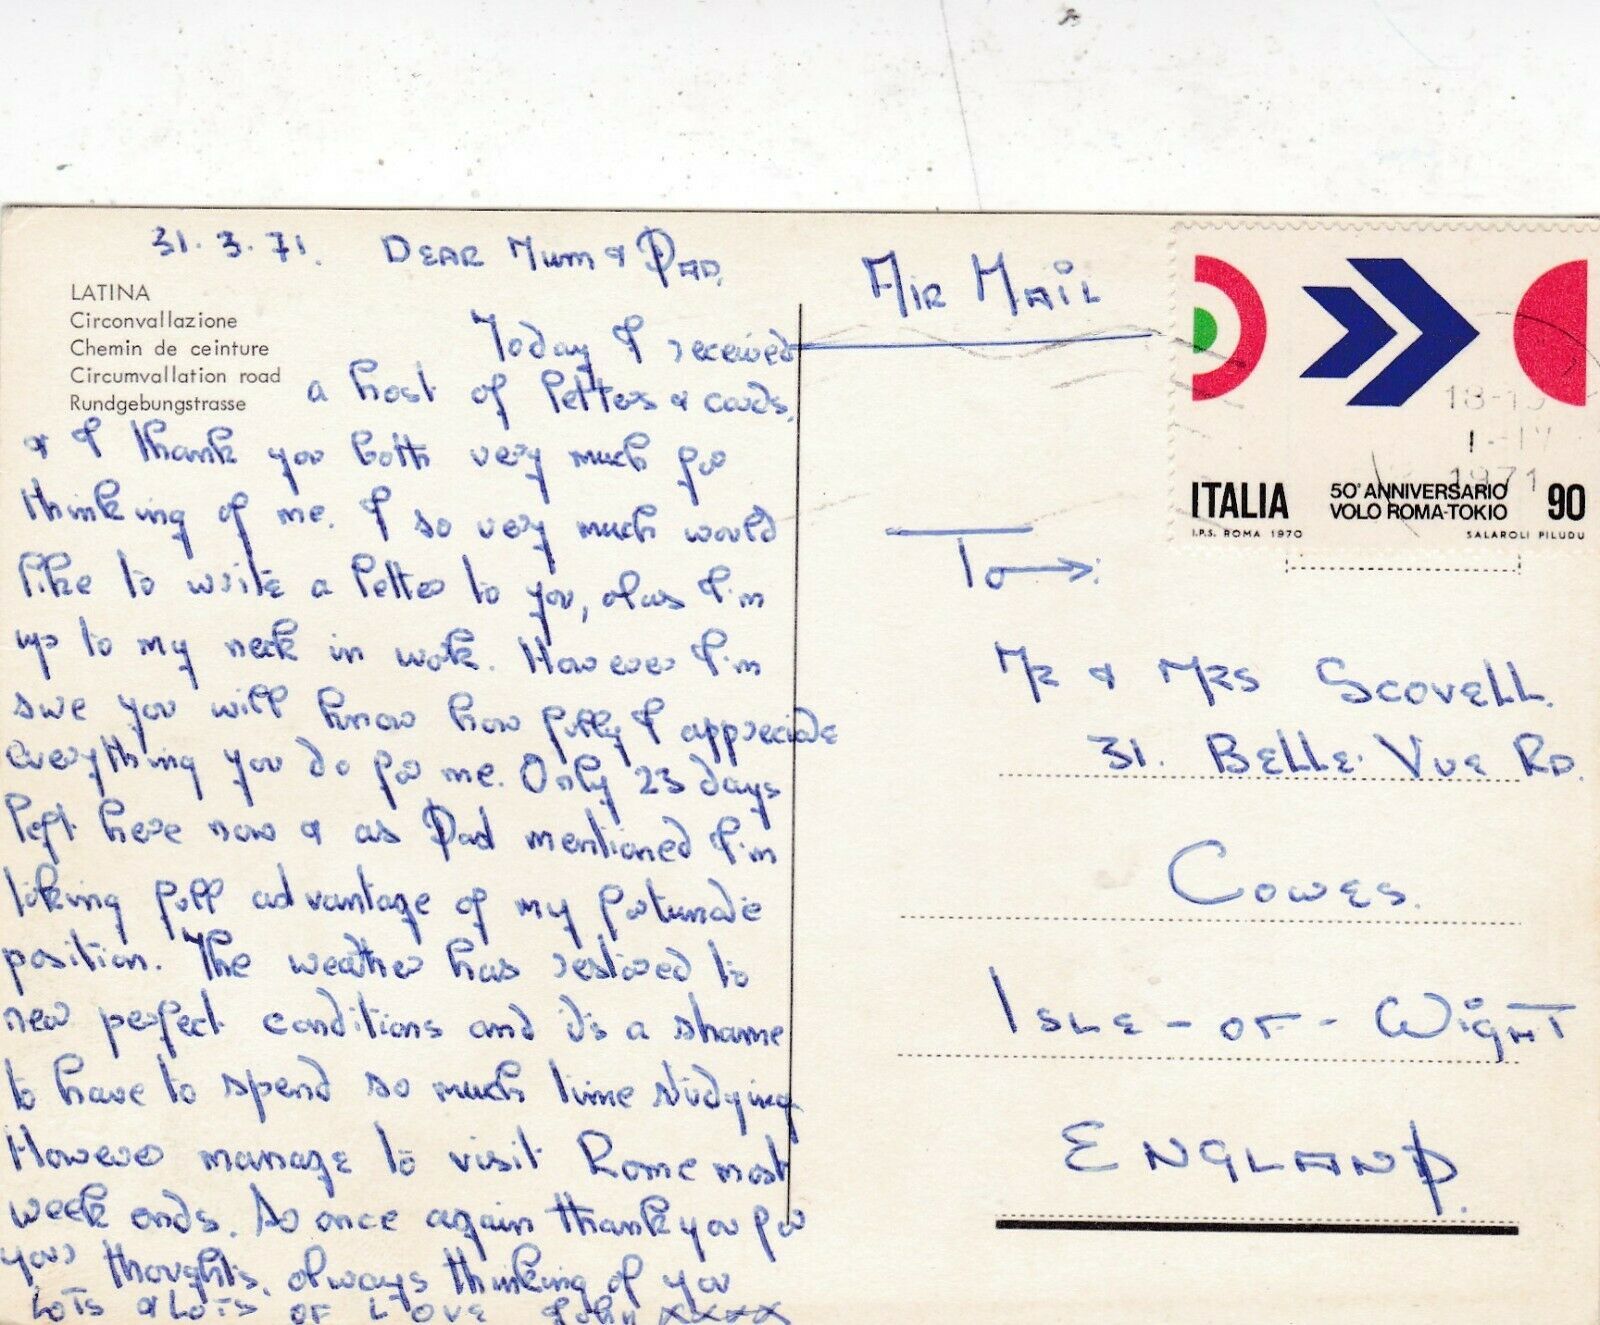 31.3.71. DEAR MUM & DAD,
LATINA
Circonvallazione
Chemin de ceinture
Circumvallation road
Rundgebungstrasse
Today I received
a host of letters & cards,
& I thank you both very much for
thinking of me. I so very much would
like to write a letter to you, alas I'm
up to my neck in work. However I'm
sure you will know how fully I appreciate
everything you do for me. Only 23 days
left here now & as Dad mentioned I'm
taking full advantage of my fortunate
position. The weather has restored to
near perfect conditions and it's a shame
to have to spend so much time studying
However manage to visit Rome most
week ends. So once again thank you for
your thoughts, always thinking of you
LOTS & LOTS OF LOVE John xxxx
AIR MAIL
ITALIA
50° ANNIVERSARIO
VOLO ROMA-TOKIO
90
I.P.S. ROMA 1970
SALAROLI PILUDU
1971
To →:
MR & MRS SCOVELL.
31. BELLE. VUE RD.
COWES.
ISLE - OF - WIGHT
ENGLAND.